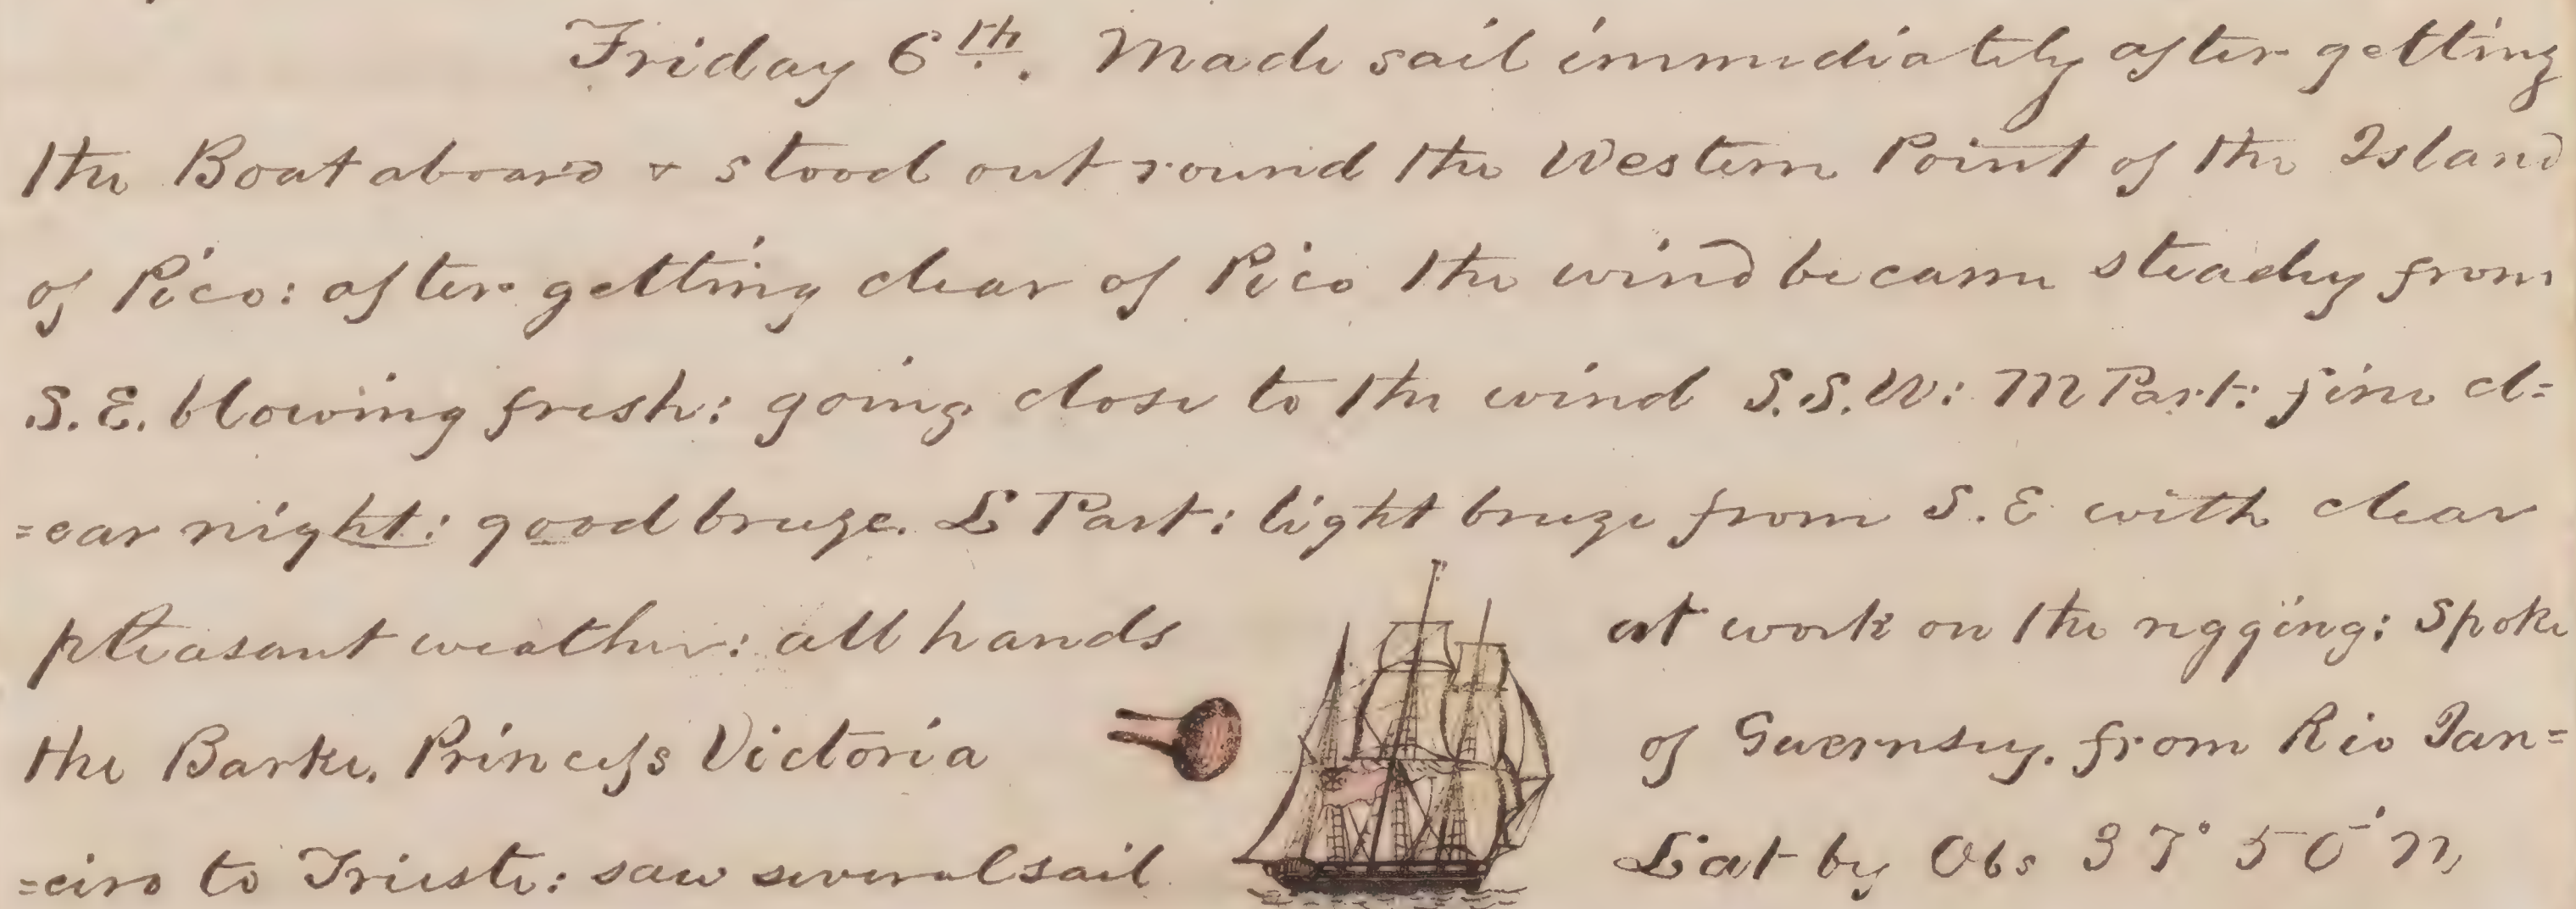 Friday 6th. Made sail immediately after getting
the Boat aboard & stood out round the Western Point of the Island
of Pico: after getting clear of Pico the wind became steady from
S.E. blowing fresh: going close to the wind S.S.W: M Part: fine cl=
=ear night: good breeze. L Part: light breeze from S.E with clear
pleasant weather: all hands at work on the rigging: Spoke
the Barke, Princess Victoria of Guernsey, from Rio Jan=
=eiro to Trieste: saw several sail Lat by Obs 37° 50' N